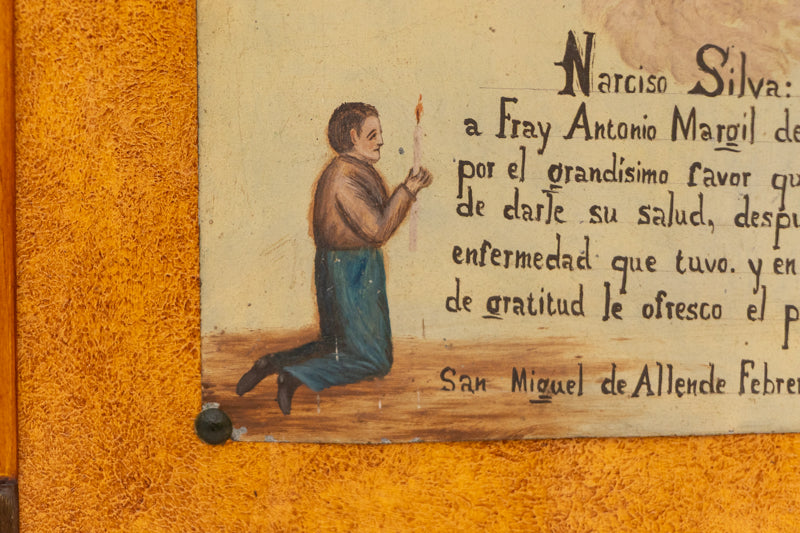 Narciso Silva:
a Fray Antonio Margil de
por el grandísimo favor qu
de darle su salud, despu
enfermedad que tuvo. y en
de gratitud le ofresco el p
San Miguel de Allende Febrer